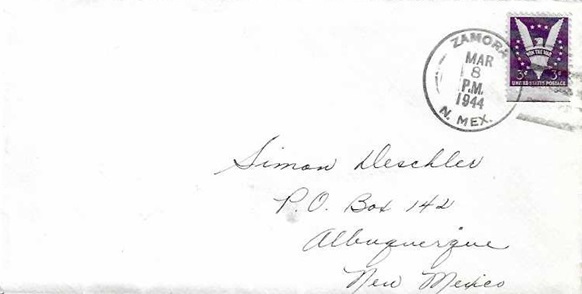 ZAMORA
MAR
8
P.M.
1944
N. MEX.
WIN THE WAR
3¢ 3¢
UNITED STATES POSTAGE
Simon Deschler
P.O. Box 142
Albuquerque
New Mexico